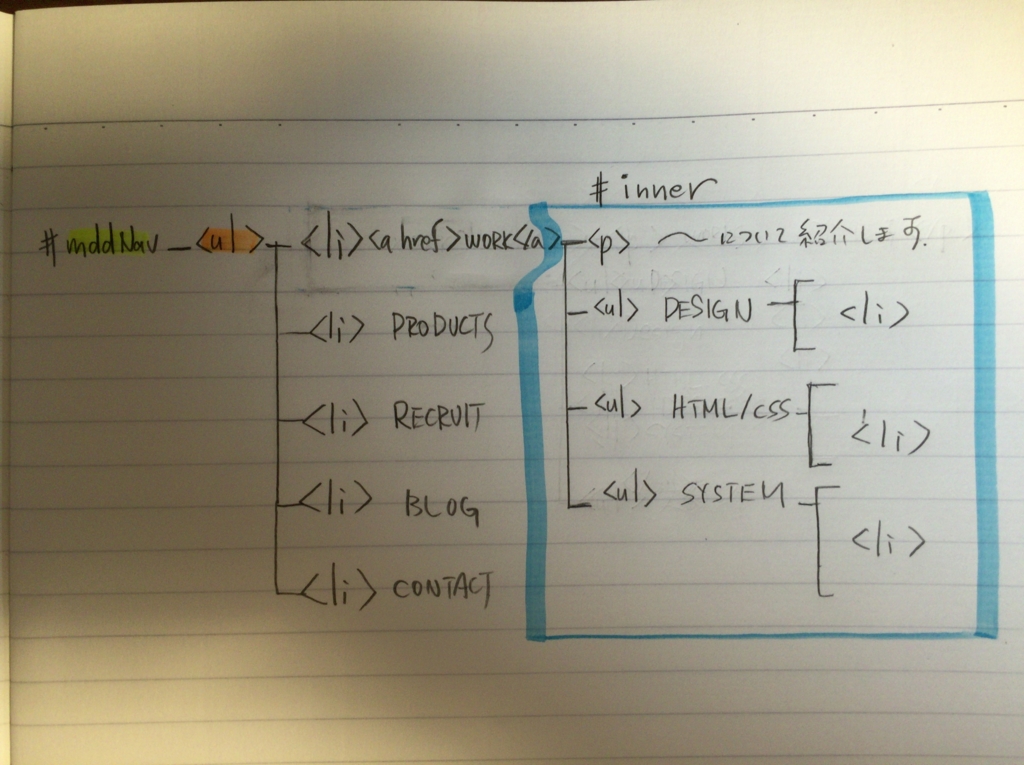 # inner
# mddNav — <ul> <li><a href>WORK</a> <p> 〜について紹介します.
<li> PRODUCTS <ul> DESIGN <li>
<li> RECRUIT <ul> HTML/CSS <li>
<li> BLOG <ul> SYSTEM <li>
<li> CONTACT